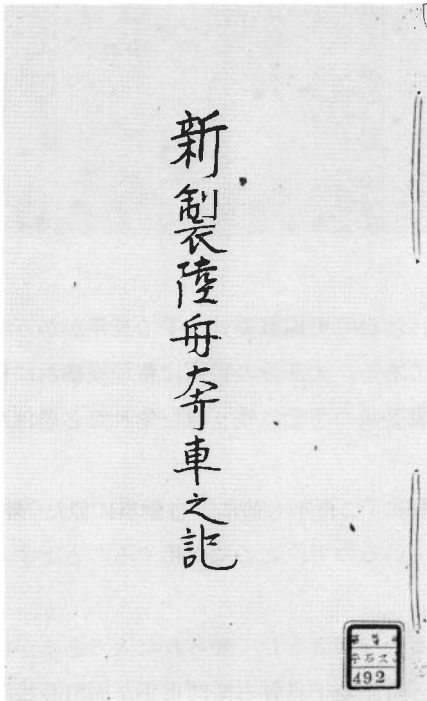 新製陸舟奔車之記
492